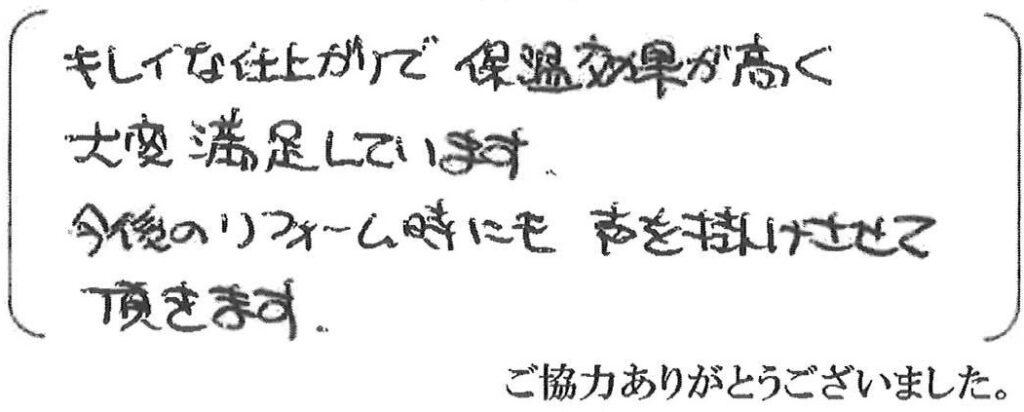 キレイな仕上がりで 保温効果が高く
大変満足しています.
今後のリフォーム時にも 声を掛けさせて
頂きます.
ご協力ありがとうございました。